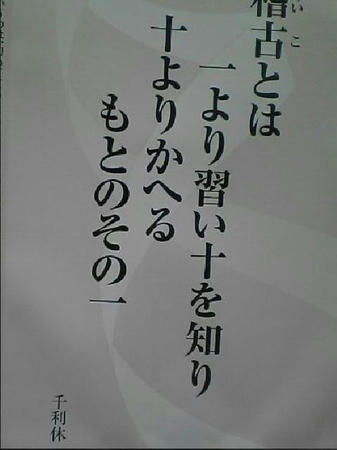 稽古とは
いこ
一より習い十を知り
十よりかへる
もとのその一
千利休